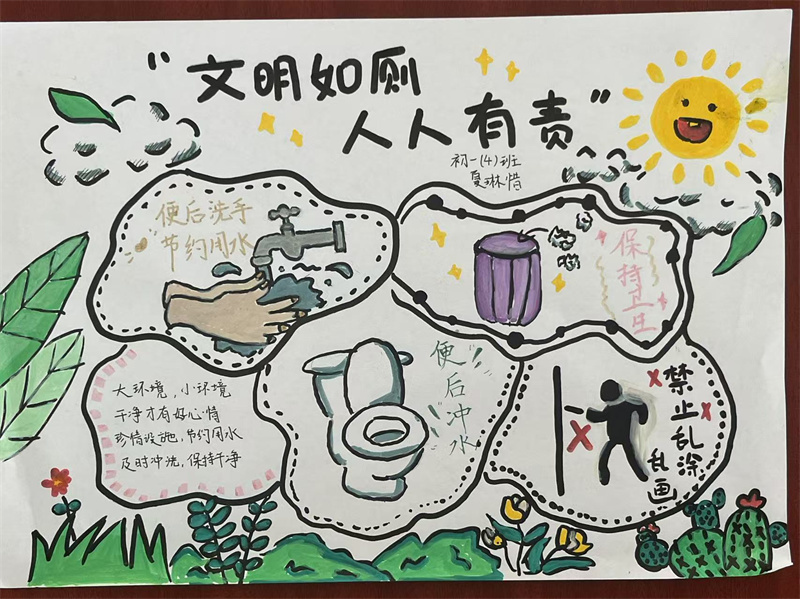 "文明如厕
人人有责"
初一(4)班
夏琳惜
便后洗手
节约用水
保持卫生
大环境,小环境
干净才有好心情
珍惜设施,节约用水
及时冲洗,保持干净
便后冲水
禁止乱涂
乱画